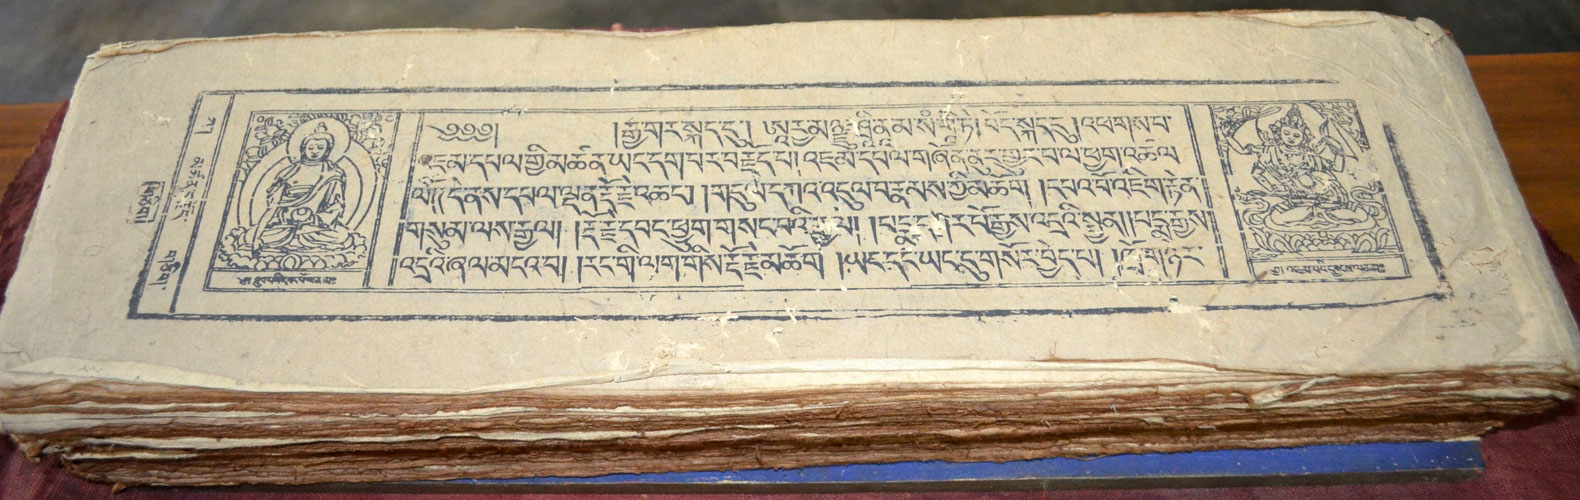 ཀ།
གཅིག།
༄༅༅། །རྒྱ་གར་སྐད་དུ། ཨཱརྱ་མཉྫུ་ཤྲཱི་ནཱ་མ་སཾ་གཱི་ཏི། བོད་སྐད་དུ། འཕགས་པ་
འཇམ་དཔལ་གྱི་མཚན་ཡང་དག་པར་བརྗོད་པ། འཇམ་དཔལ་གཞོན་ནུར་གྱུར་པ་ལ་ཕྱག་འཚལ་
ལོ། །དེ་ནས་དཔལ་ལྡན་རྡོ་རྗེ་འཆང་། །གདུལ་དཀའ་འདུལ་བ་རྣམས་ཀྱི་མཆོག །དཔའ་བོ་འཇིག་རྟེན་
གསུམ་ལས་རྒྱལ། །རྡོ་རྗེ་དབང་ཕྱུག་གསང་བའི་རྒྱལ། །པདྨ་དཀར་པོ་རྒྱས་འདྲའི་སྤྱན། །པདྨ་རྒྱས་
འདྲའི་ཞལ་མངའ་བ། །རང་གི་ལག་གིས་རྡོ་རྗེ་མཆོག །ཡང་དང་ཡང་དུ་གསོར་བྱེད་པ། །ཁྲོ་གཉེར་